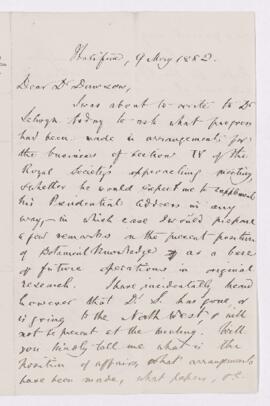 Halifax, 9 May 1882.
Dear Dr Dawson,
I was about to write to Dr
Selwyn today to ask what progress
had been made in arrangements for
the business of Section IV of the
Royal Society's approaching meeting,
whether he would expect me to supplement
his Presidential address in any
way, – in which case I would prepare
a few remarks on the present position
of Botanical Knowledge as a base
of future operations in original
research. I have incidentally heard
however that Dr S. has gone, or
is going to the North West, & will
not be present at the meeting. Will
you kindly tell me what is the
position of affairs, what arrangements
have been made, what papers, &c.